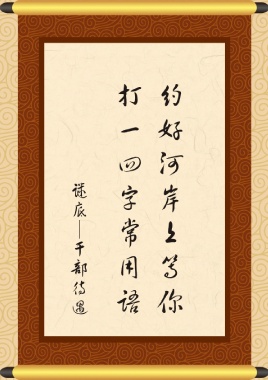 约好河岸上等你
打一四字常用语
谜底——干部待遇